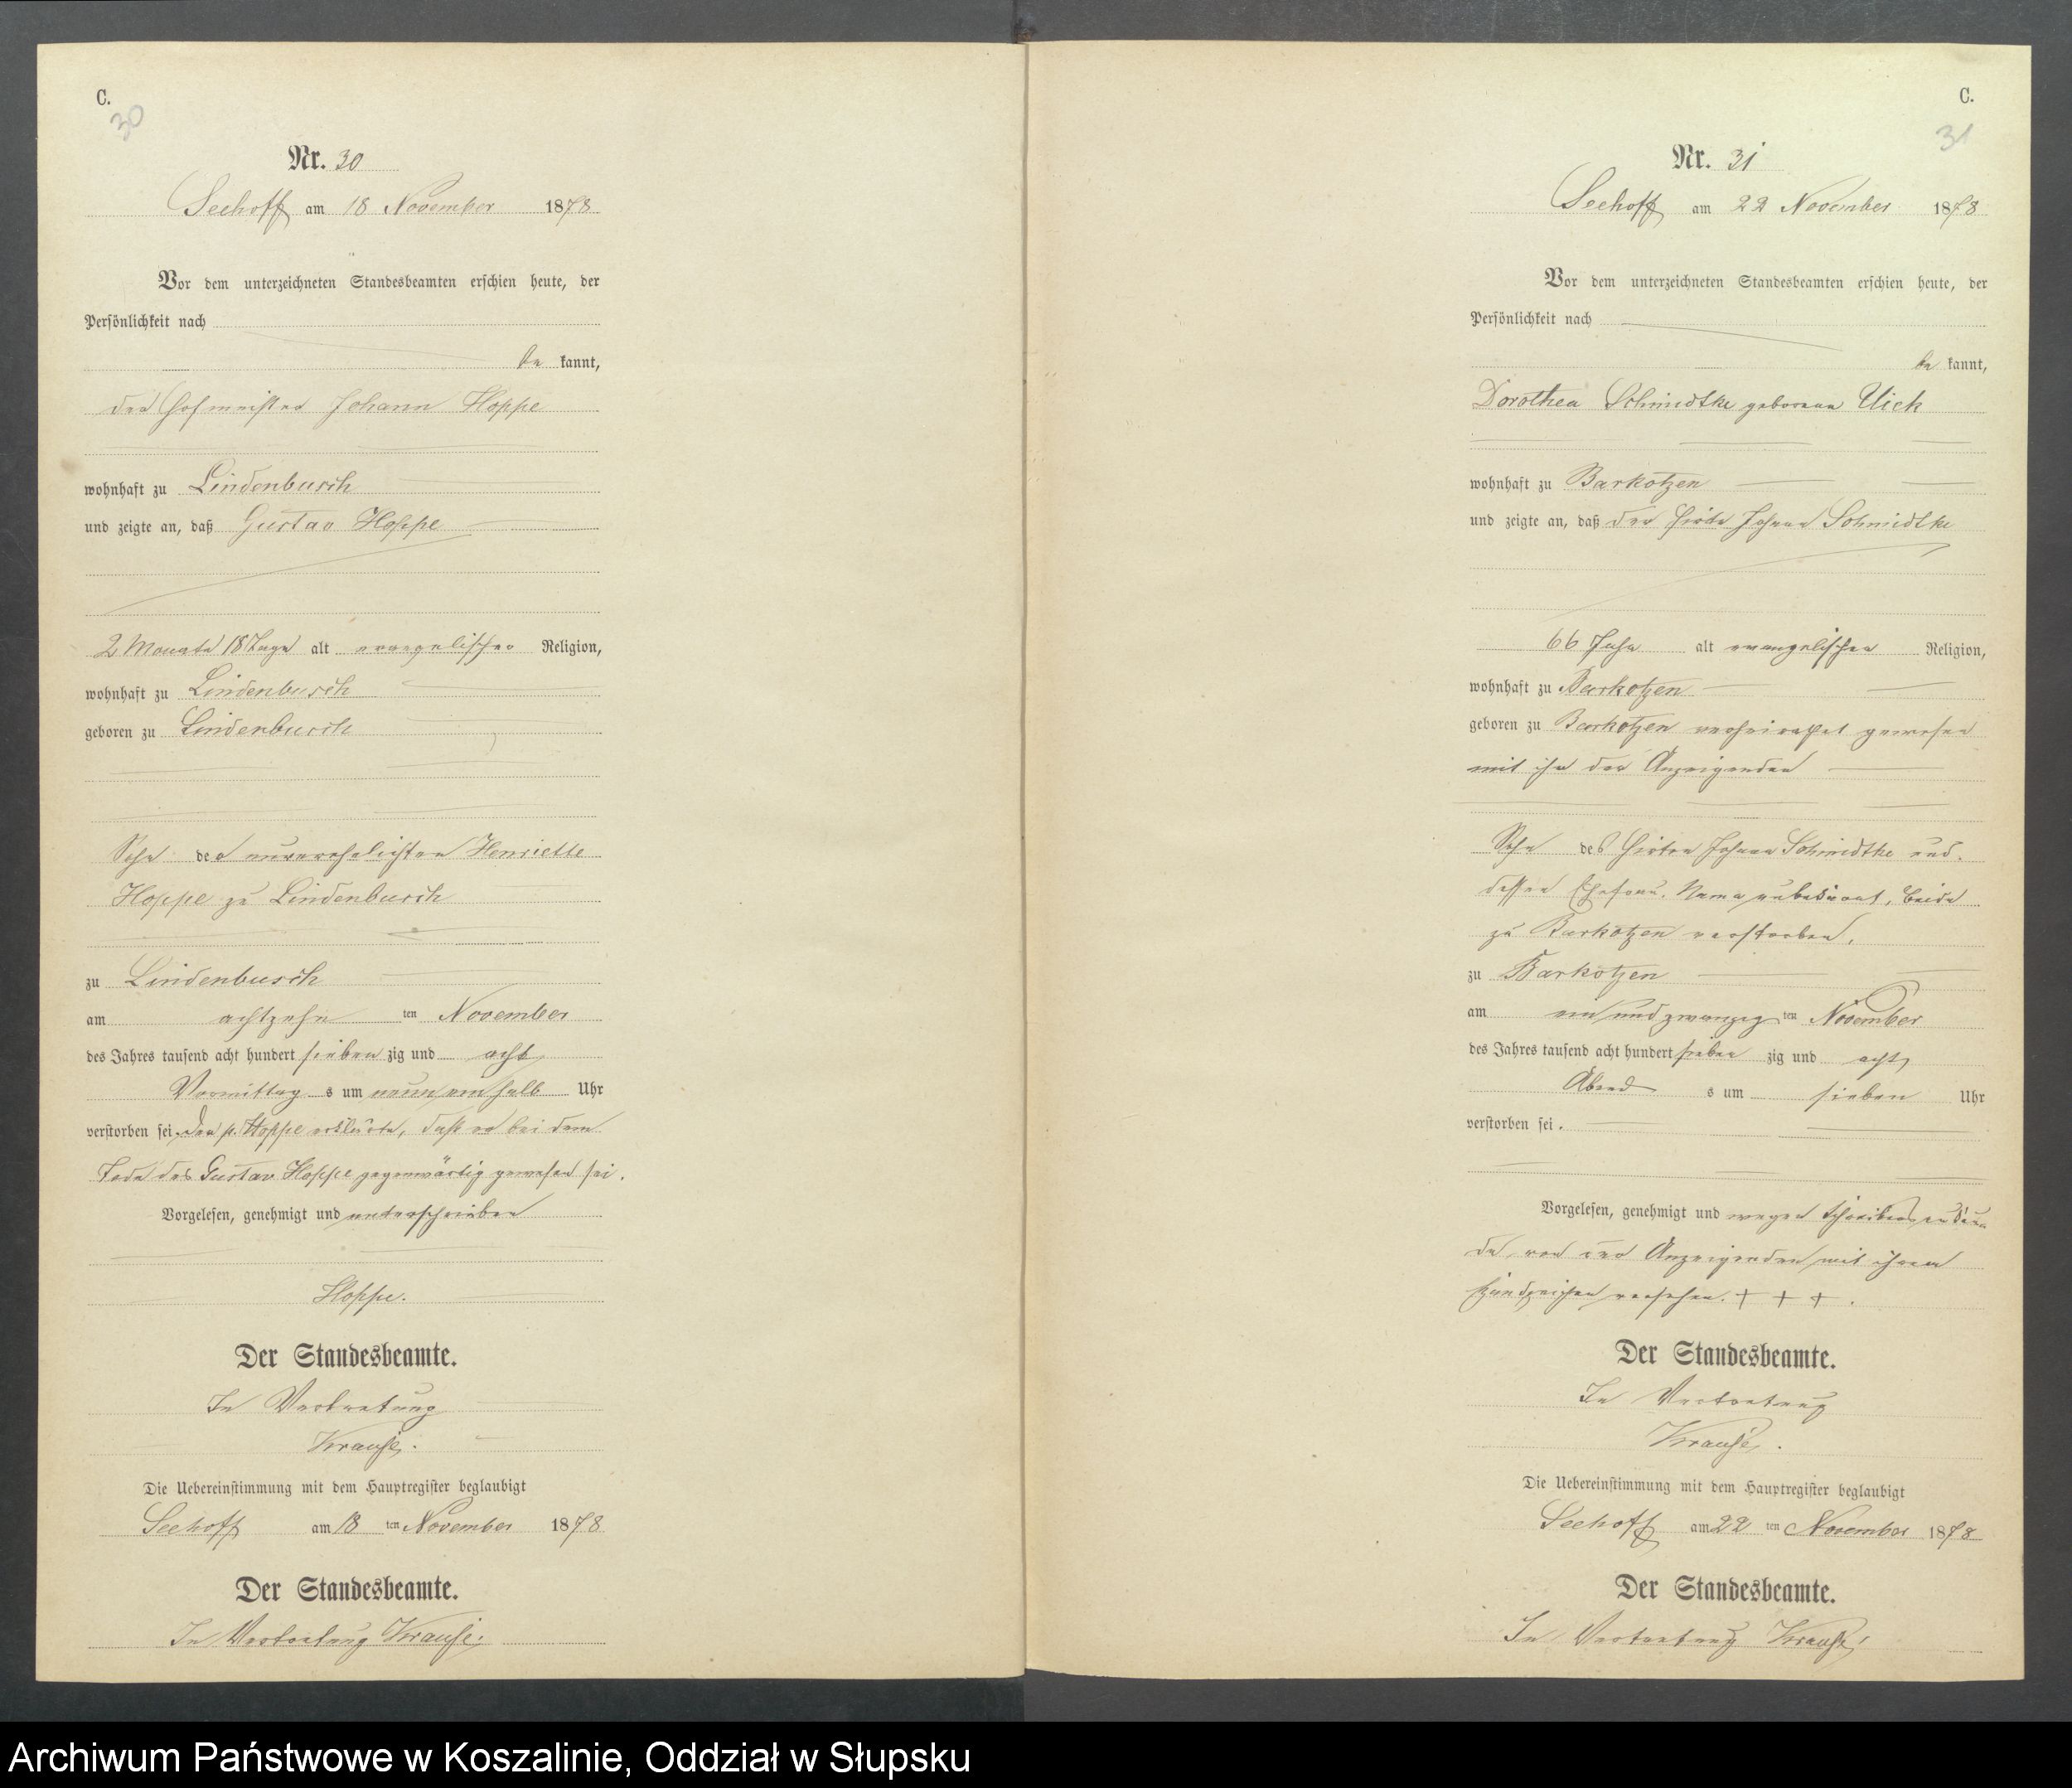 C.
30
Nr. 30
Seehoff am 18 November 1878
Vor dem unterzeichneten Standesbeamten erschien heute, der
Persönlichkeit nach
be kannt,
der Hofmeister Johann Hoppe
wohnhaft zu Lindenbusch
und zeigte an, daß Gustav Hoppe
2 Monate 18 Tage alt evangelischer Religion,
wohnhaft zu Lindenbusch
geboren zu Lindenbusch
Sohn der unverehelichten Henriette
Hoppe zu Lindenbusch
zu Lindenbusch
am achtzehn ten November
des Jahres tausend acht hundert sieben zig und acht
Vormittag s um neun ein halb Uhr
verstorben sei. Der p. Hoppe erklärte, daß er bei dem
Tode des Gustav Hoppe gegenwärtig gewesen sei.
Vorgelesen, genehmigt und unterschrieben
Hoppe.
Der Standesbeamte.
In Vertretung
Krause.
Die Uebereinstimmung mit dem Hauptregister beglaubigt
Seehoff am 18 ten November 1878
Der Standesbeamte.
In Vertretung Krause.
C.
31
Nr. 31
Seehoff am 22 November 1878
Vor dem unterzeichneten Standesbeamten erschien heute, der
Persönlichkeit nach
be kannt,
Dorothea Schmidtke geborene Uick
wohnhaft zu Barkotzen
und zeigte an, daß der Hirte Johann Schmidtke
66 Jahr alt evangelischer Religion,
wohnhaft zu Barkotzen
geboren zu Barkotzen verheirathet gewesen
mit ihr der Anzeigenden
Sohn des Hirten Johann Schmidtke und
dessen Ehefrau, Name unbekannt, beide
zu Barkotzen verstorben,
zu Barkotzen
am ein und zwanzig ten November
des Jahres tausend acht hundert sieben zig und acht
Abend s um sieben Uhr
verstorben sei.
Vorgelesen, genehmigt und wegen Schreibensunkun
de von der Anzeigenden mit ihrem
Handzeichen versehen. + + + .
Der Standesbeamte.
In Vertretung
Krause.
Die Uebereinstimmung mit dem Hauptregister beglaubigt
Seehoff am 22 ten November 1878
Der Standesbeamte.
In Vertretung Krause.
Archiwum Państwowe w Koszalinie, Oddział w Słupsku